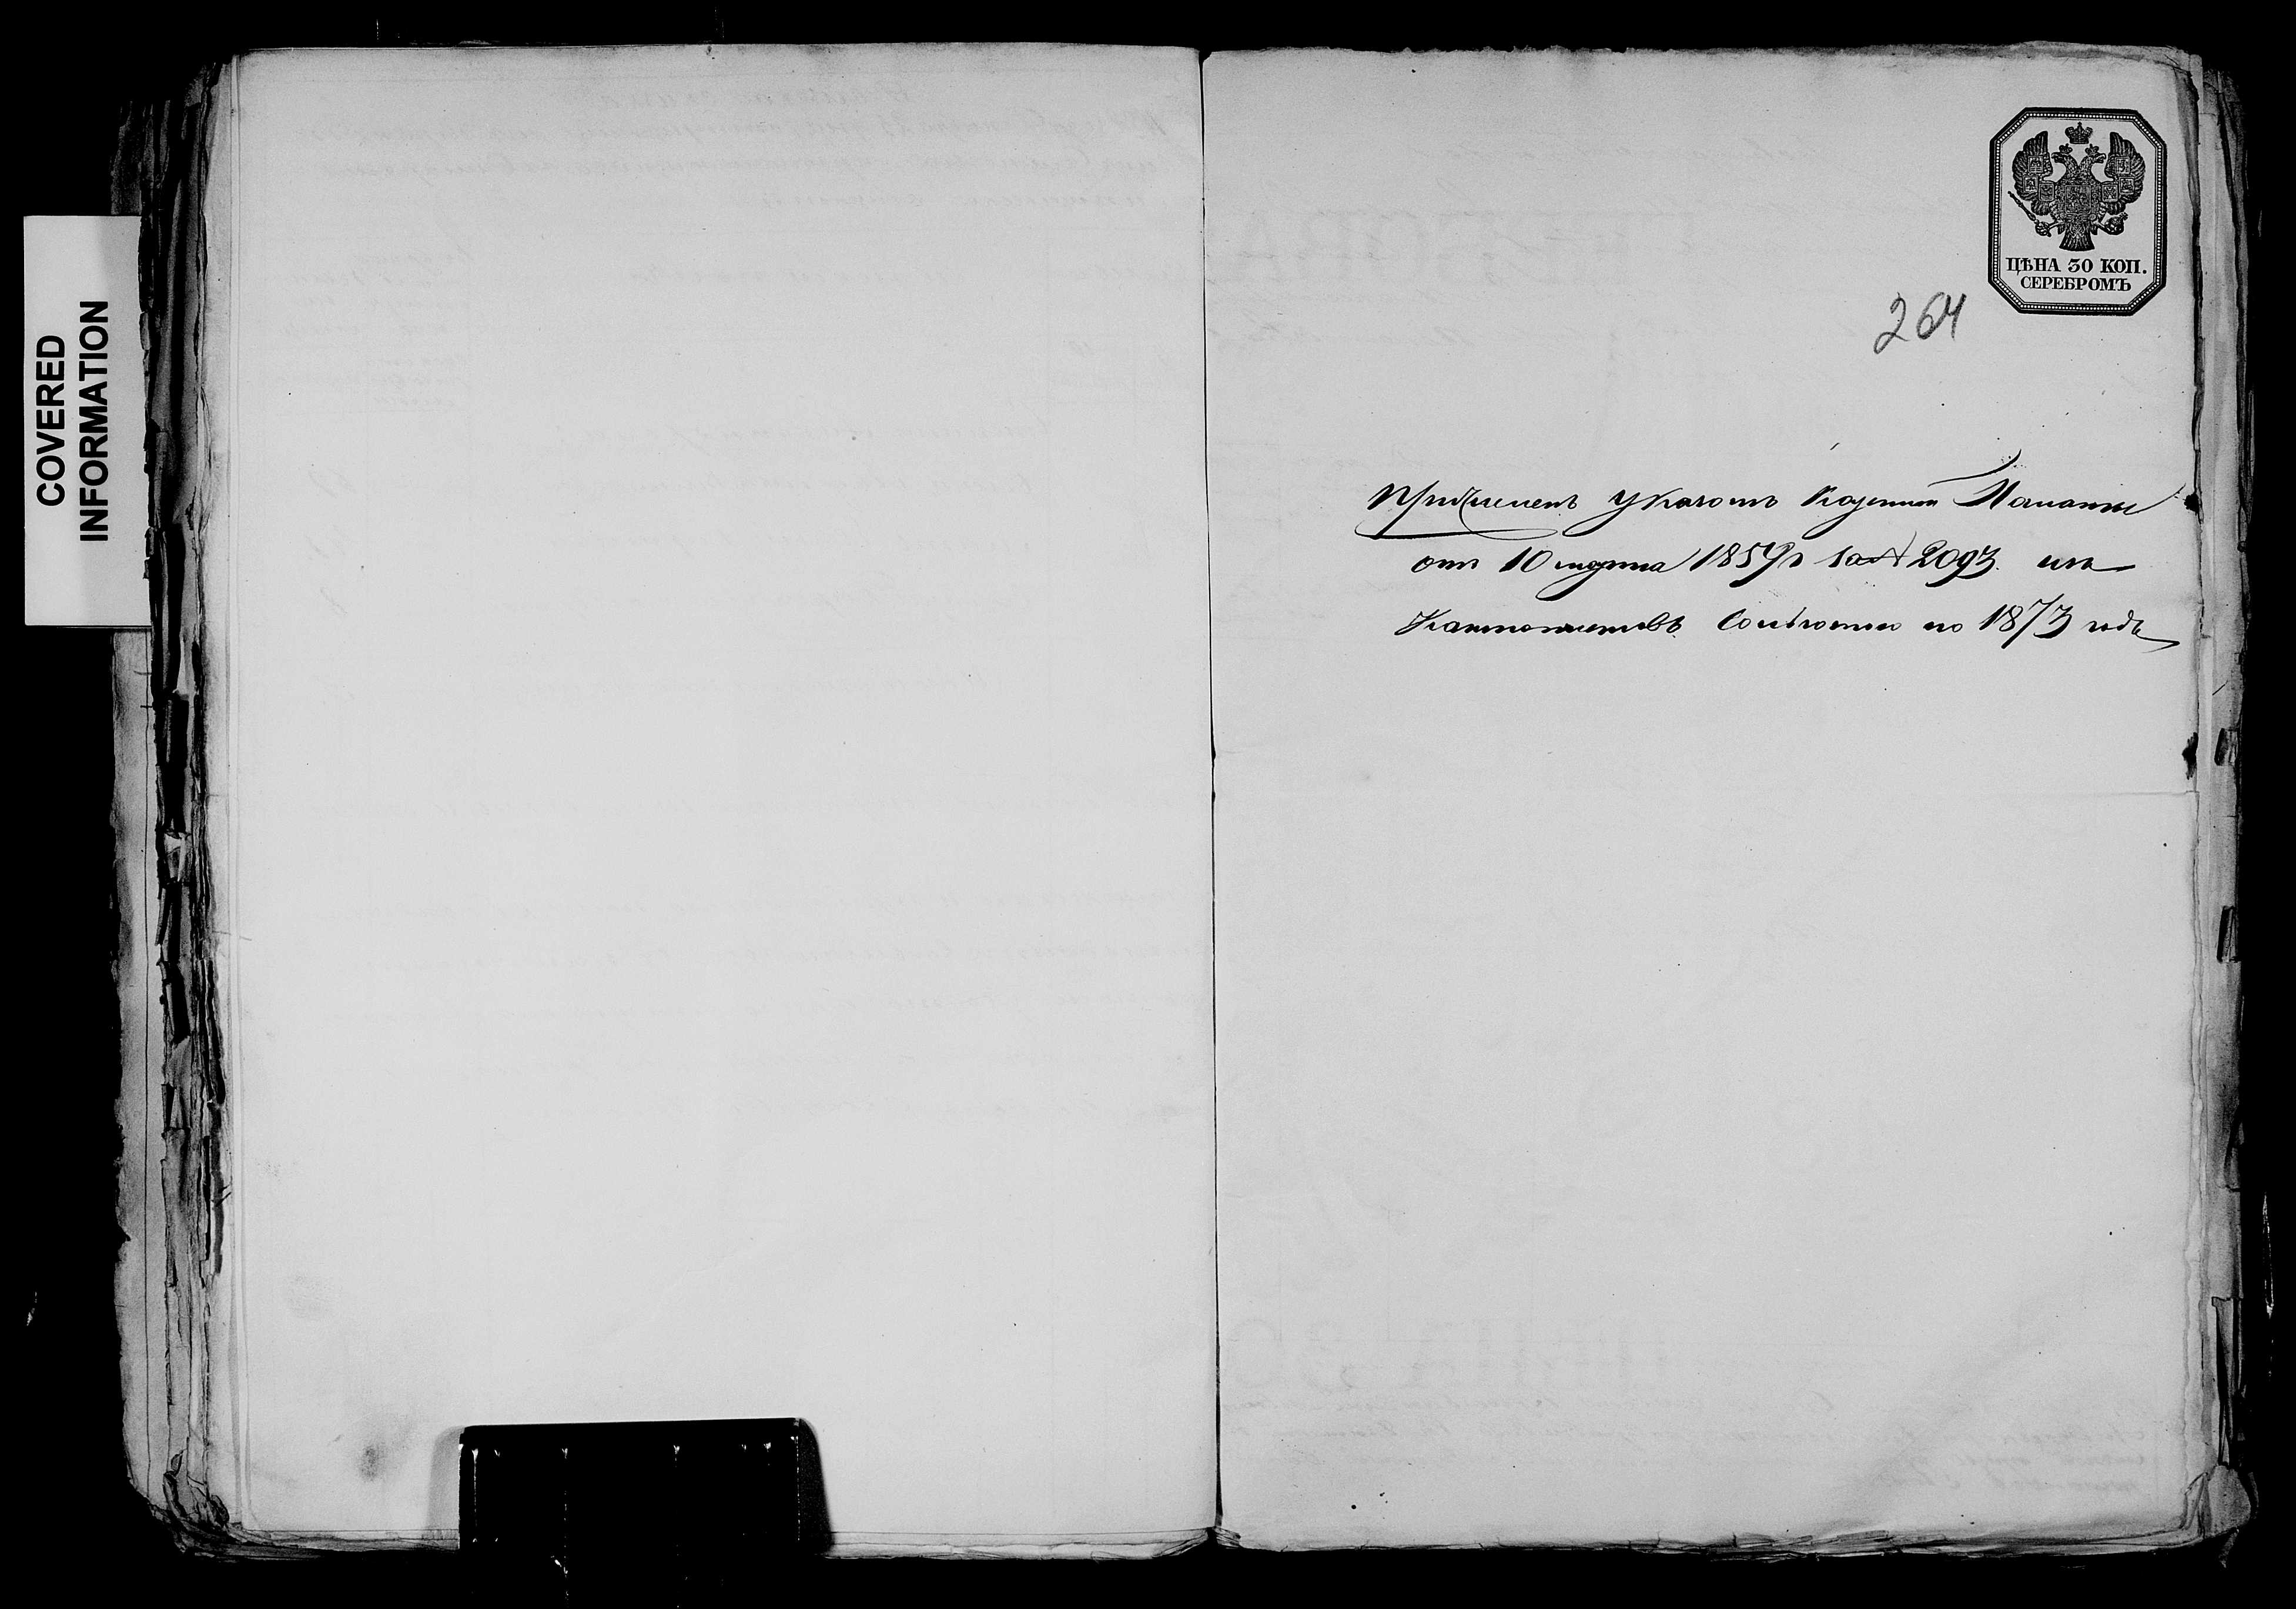 COVERED
INFORMATION
ЦѢНА 30 КОП.
СЕРЕБРОМЪ
264
Причисленъ указомъ Казенной Палаты
отъ 10 марта 1859 г за № 2093. изъ
Кантонистовъ Сольготою по 1873 годъ